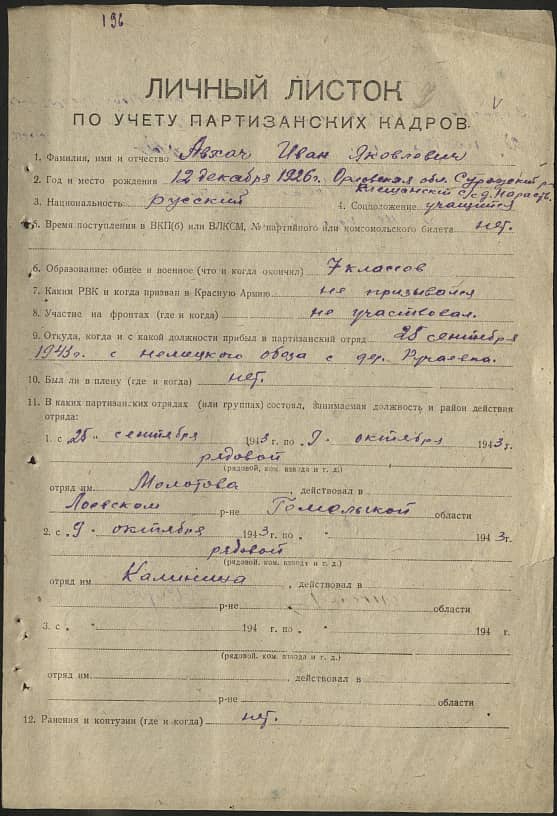 196
ЛИЧНЫЙ ЛИСТОК
ПО УЧЕТУ ПАРТИЗАНСКИХ КАДРОВ
1. Фамилия, имя и отчество Авхач Иван Яковлевич
2. Год и место рождения 12 декабря 1926г. Орловская обл. Суражский
3. Национальность: русский 4. Соцположение учащийся
5. Время поступления в ВКП(б) или ВЛКСМ, № партийного или комсомольского билета нет.
6. Образование: общее и военное (что и когда окончил) 7 классов
7. Каким РВК и когда призван в Красную Армию не призывался
8. Участие на фронтах (где и когда) не участвовал.
9. Откуда, когда и с какой должности прибыл в партизанский отряд 25 сентября
1943г. с немецкого обоза с дер. Ручаевка.
10. Был ли в плену (где и когда) нет.
11. В каких партизанских отрядах (или группах) состоял, занимаемая должность и район действия
отряда:
1. с „25„ сентября 1943 г. по „9„ октября 1943г.
рядовой
(рядовой, ком. взвода и т. д.)
отряд им. Молотова, действовал в
Лоевском р-не Гомельской области
2. с „9„ октября 1943 г. по „ „ 1943г.
рядовой
(рядовой, ком. взвода и т. д.)
отряд им Калинина, действовал в
р-не области
3. с „ „ 194 г. по „ „ 194 г.
(рядовой, ком. взвода и т. д.)
отряд им., действовал в
р-не области
12. Ранения и контузии (где и когда) нет.